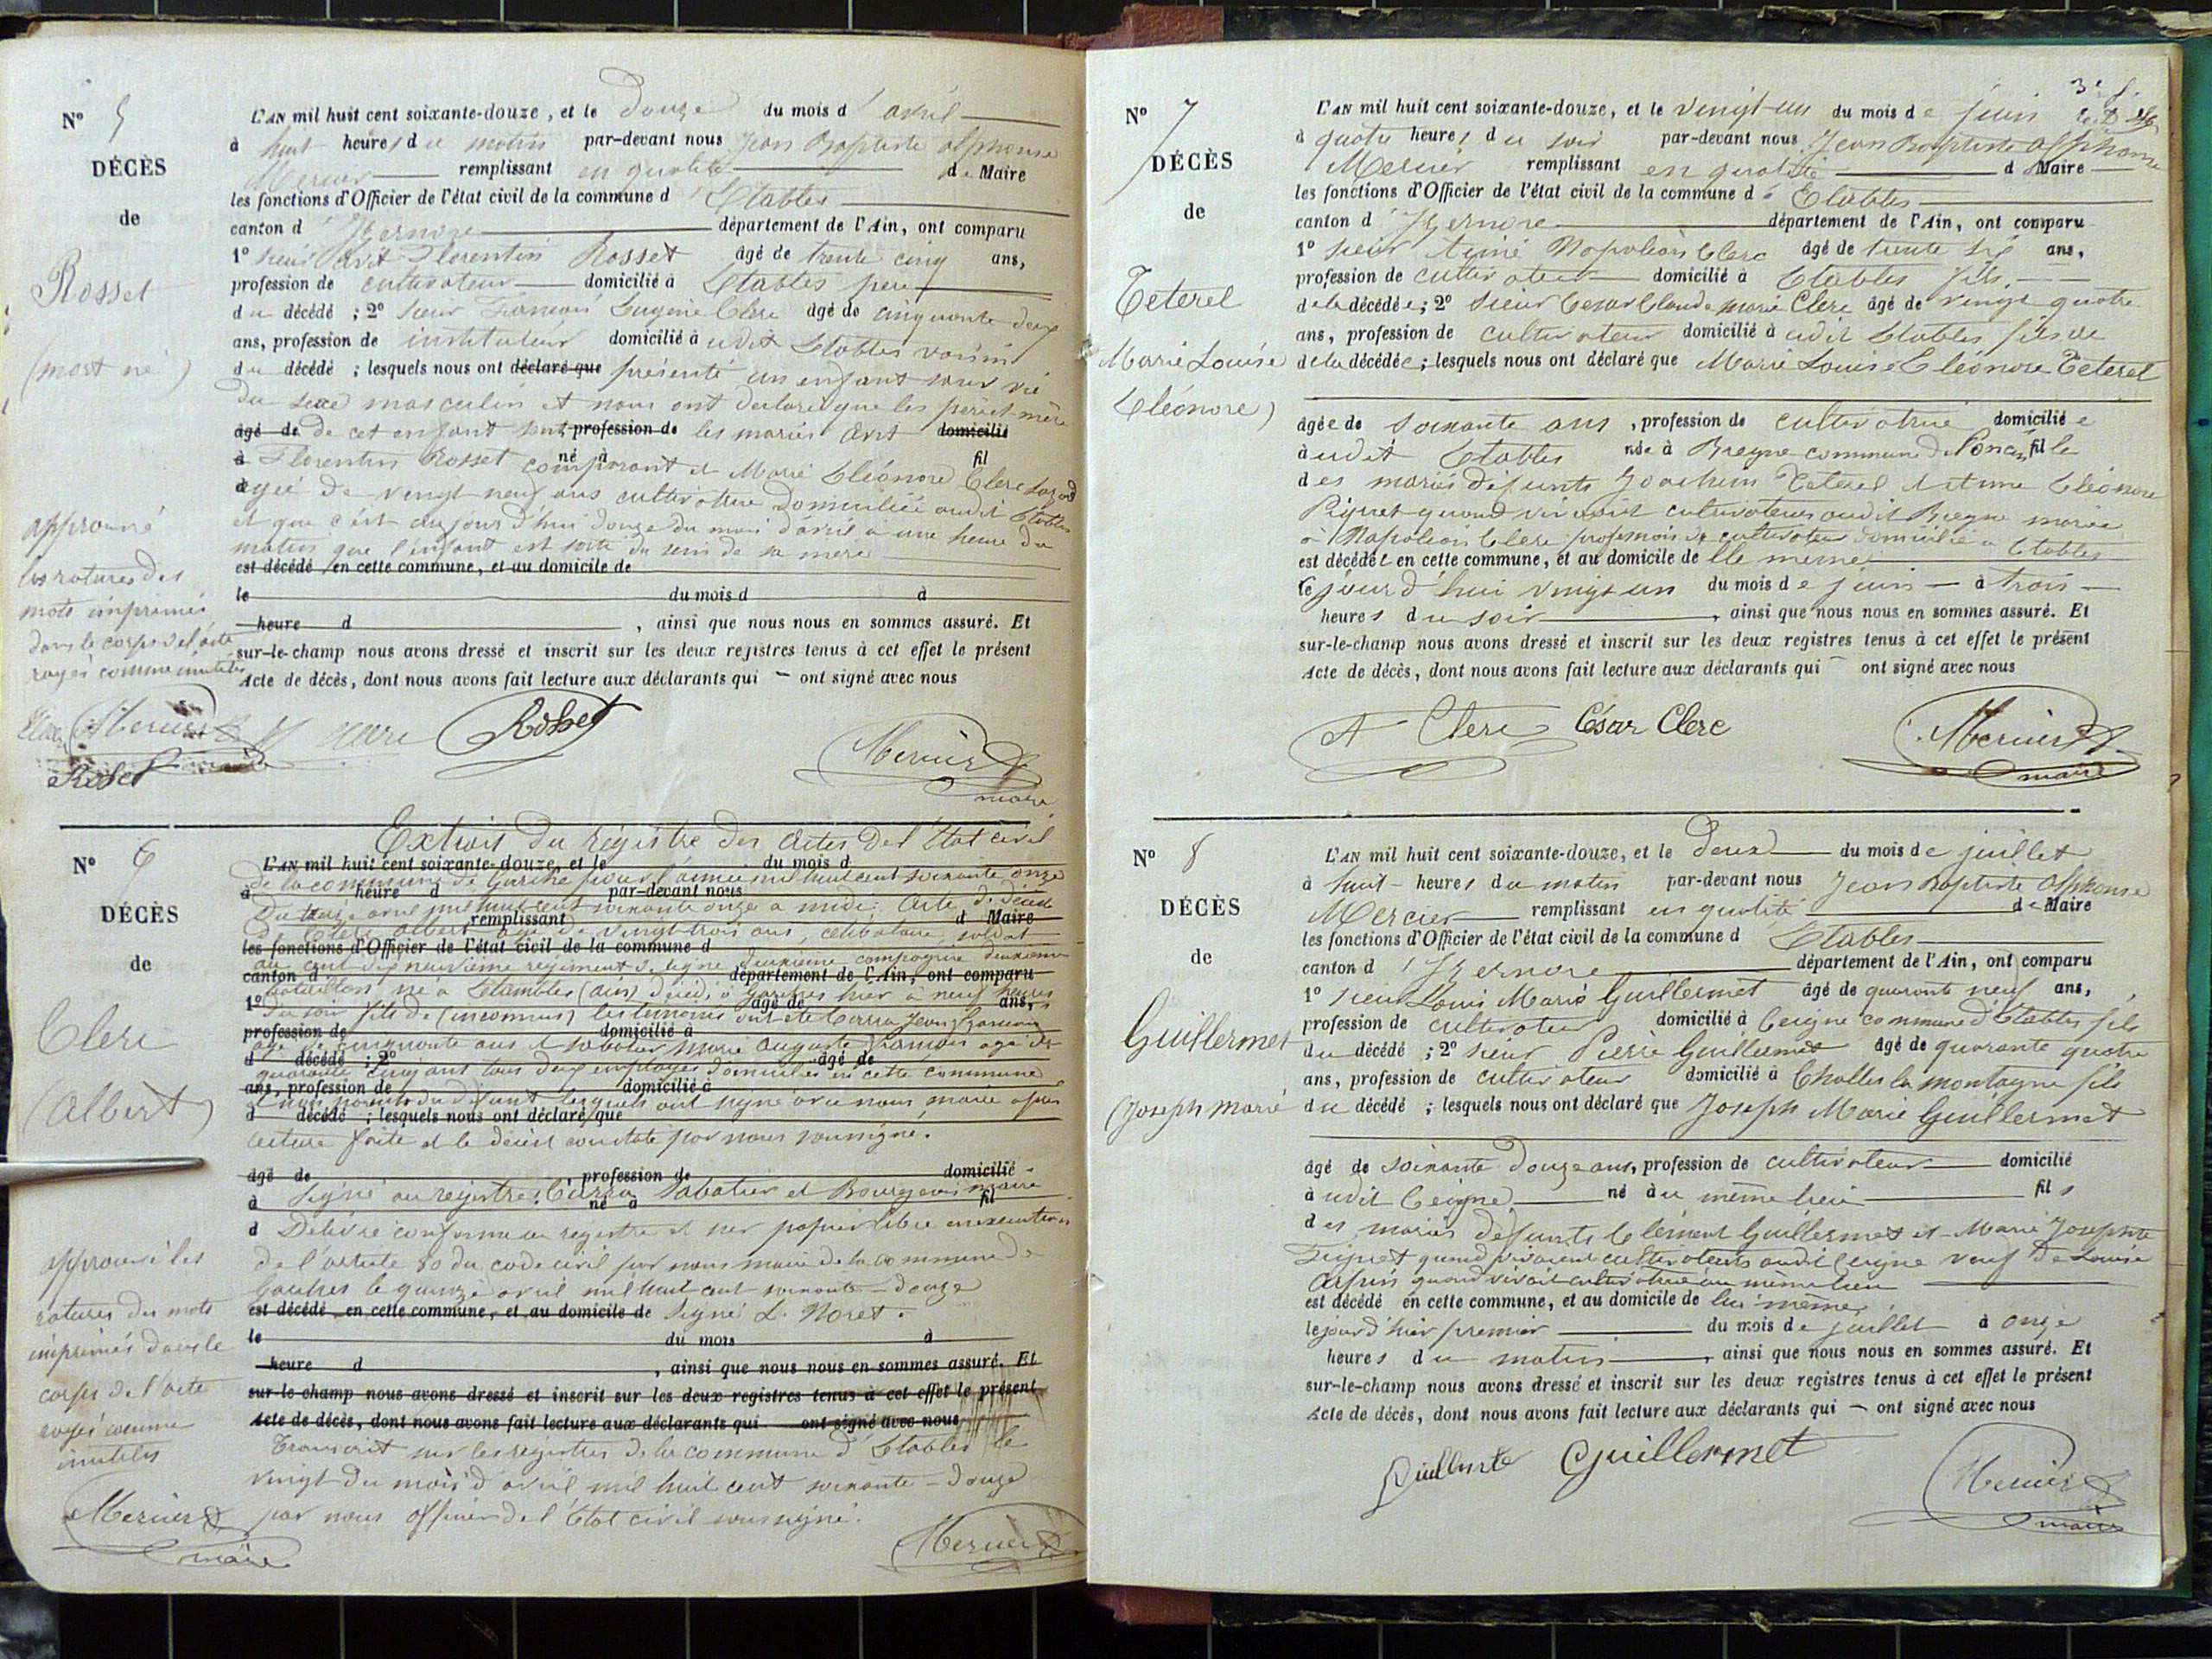 N° 5
DÉCÈS
de
Rosset
(mort né)
approuvé
les ratures des
mots imprimés
dans le corps de l'acte
rayés comme inutiles
Clerc Mercier
Rosset
L'AN mil huit cent soixante-douze, et le douze du mois d'avril
à huit heures du matin par-devant nous Jean Baptiste Alphonse
Mercier remplissant en qualité de Maire
les fonctions d'Officier de l'état civil de la commune d'Etables
canton d'Izernore département de l'Ain, ont comparu
1° sieur Avit Florentin Rosset âgé de trente cinq ans,
profession de cultivateur domicilié à Etables père
du décédé ; 2° sieur François Eugène Clerc âgé de cinquante deux
ans, profession de instituteur domicilié à udit Etables voisin
du décédé ; lesquels nous ont déclaré que présenté un enfant sans vie
du sexe masculin et nous ont déclaré que les père et mère
âgé de de cet enfant sont profession de les mariés Avit domicilié
à Florentin Rosset né à comparant et Marie Eléonore Clerc fil
âgée de vingt neuf ans cultivatrice domiciliée audit Etables
et que c'est aujourd'hui douze du mois d'avril à une heure du
matin que l'enfant est sorti du sein de sa mère
est décédé en cette commune, et au domicile de
le du mois d à
heure d , ainsi que nous nous en sommes assuré. Et
sur-le-champ nous avons dressé et inscrit sur les deux registres tenus à cet effet le présent
Acte de décès, dont nous avons fait lecture aux déclarants qui ont signé avec nous
Clerc Rosset
Mercier
maire
N° 6
DÉCÈS
de
Clerc
(Albert)
approuvé les
ratures des mots
imprimés dans le
corps de l'acte
rayés comme
inutiles
Mercier
maire
Extrait du registre des actes de l'Etat civil
L'AN mil huit cent soixante-douze, et le du mois d
de la commune de Garches pour l'année mil huit cent soixante onze
à heure d par-devant nous
Du treize avril mil huit cent soixante onze à midi. Acte de décès
remplissant d Maire
de Clerc Albert âgé de vingt trois ans, célibataire, soldat
les fonctions d'Officier de l'état civil de la commune d
au cent dix neuvième régiment de ligne deuxième compagnie deuxième
canton d département de l'Ain, ont comparu
bataillon né à Etambles (Ain) décédé à Garches hier à neuf heures
1° âgé de ans,
du soir fils de (inconnus) les témoins ont été Carra Jean François
profession de domicilié à
âgé de cinquante ans et Sabatier Marie Auguste François âgé de
d décédé ; 2° âgé de
quarante cinq ans tous deux employés domiciliés en cette commune
ans, profession de domicilié à
non parents du défunt lesquels ont signé avec nous maire après
d décédé ; lesquels nous ont déclaré que
lecture faite et le décès constaté par nous soussigné.
âgé de profession de domicilié
à signé au registre : Carra Sabatier et Bourgeois maire
né à fil
d Délivré conforme au registre et sur papier libre en exécution
de l'article 80 du code civil par nous maire de la commune de
Garches le quinze avril mil huit cent soixante-douze
est décédé en cette commune, et au domicile de Signé L. Noret.
le du mois à
heure d , ainsi que nous nous en sommes assuré. Et
sur-le-champ nous avons dressé et inscrit sur les deux registres tenus à cet effet le présent
Acte de décès, dont nous avons fait lecture aux déclarants qui ont signé avec nous
Transcrit sur les registres de la commune d'Etables le
vingt du mois d'avril mil huit cent soixante-douze
par nous officier de l'Etat civil soussigné.
Mercier
3e f.
N° 7
DÉCÈS
de
Teterel
Marie Louise
Eléonore)
L'AN mil huit cent soixante-douze, et le vingt-un du mois de juin
à quatre heures du soir par-devant nous Jean Baptiste Alphonse
Mercier remplissant en qualité d Maire
les fonctions d'Officier de l'état civil de la commune d'Etables
canton d'Izernore département de l'Ain, ont comparu
1° sieur Aimé Napoléon Clerc âgé de trente six ans,
profession de cultivateur domicilié à Etables fils
de la décédée ; 2° sieur Cesar Claude Marie Clerc âgé de vingt quatre
ans, profession de cultivateur domicilié à udit Etables fils de
de la décédée ; lesquels nous ont déclaré que Marie Louise Eléonore Teterel
âgée de soixante ans, profession de cultivatrice domiciliée
à udit Etables née à Breyne commune de Poncin fille
des mariés défunts Joachim Teterel et Anne Eléonore
Piquet quand vivaient cultivateurs audit Breyne mariée
à Napoléon Clerc profession de cultivateur domicilié à Etables
est décédée en cette commune, et au domicile de lle même
le jour d'hui vingt un du mois de juin à trois
heures du soir , ainsi que nous nous en sommes assuré. Et
sur-le-champ nous avons dressé et inscrit sur les deux registres tenus à cet effet le présent
Acte de décès, dont nous avons fait lecture aux déclarants qui ont signé avec nous
A Clerc César Clerc
Mercier
maire
N° 8
DÉCÈS
de
Guillermet
(Joseph Marie
L'AN mil huit cent soixante-douze, et le deux du mois de juillet
à huit heures du matin par-devant nous Jean Baptiste Alphonse
Mercier remplissant en qualité de Maire
les fonctions d'Officier de l'état civil de la commune d Etables
canton d'Izernore département de l'Ain, ont comparu
1° sieur Louis Marie Guillermet âgé de quarante neuf ans,
profession de cultivateur domicilié à Ceigne commune d'Etables fils
du décédé ; 2° sieur Pierre Guillermet âgé de quarante quatre
ans, profession de cultivateur domicilié à Challes la montagne fils
du décédé ; lesquels nous ont déclaré que Joseph Marie Guillermet
âgé de soixante douze ans, profession de cultivateur domicilié
à udit Ceigne né au même lieu fils
des mariés défunts Clément Guillermet et Marie Josephte
quand vivaient cultivateurs audit Ceigne veuf de Louise
quand vivait cultivatrice au même lieu
est décédé en cette commune, et au domicile de lui même
le jour d'hier premier du mois de juillet à onze
heures du matin , ainsi que nous nous en sommes assuré. Et
sur-le-champ nous avons dressé et inscrit sur les deux registres tenus à cet effet le présent
Acte de décès, dont nous avons fait lecture aux déclarants qui ont signé avec nous
Guillermet
Mercier
maire